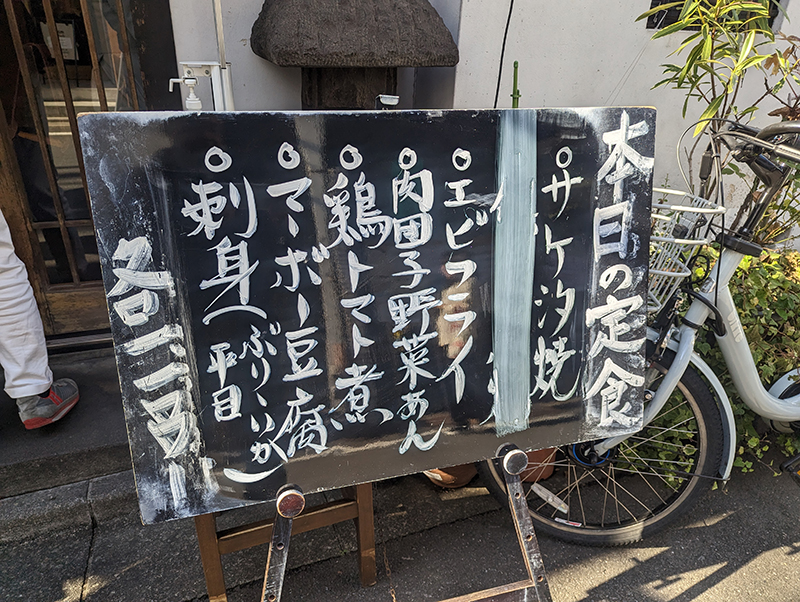 本日の定食
○サケ汐焼
○エビフライ
○肉団子野菜あん
○鶏トマト煮
○マーボー豆腐
○刺身(ぶり・いか
平目)
各